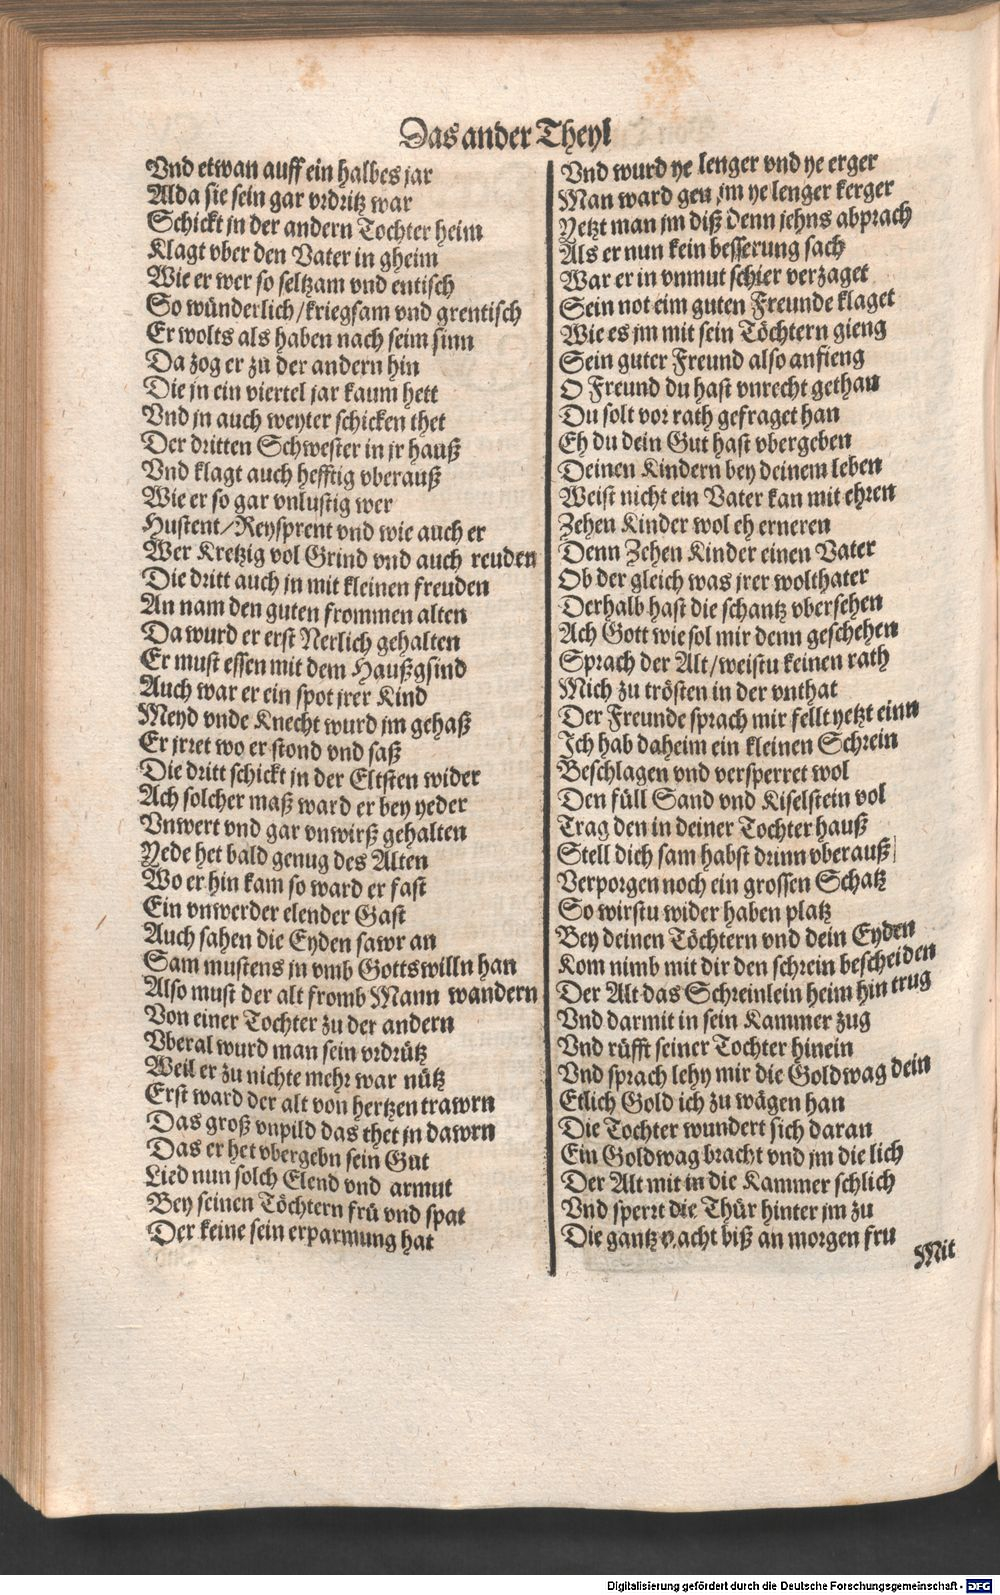 Das ander Theyl
Vnd etwan auff ein halbes jar
Alda sie sein gar vrdritz war
Schickt jn der andern Tochter heim
Klagt vber den Vater in gheim
Wie er wer so seltzam vnd entisch
So wünderlich/kriegsam vnd grentisch
Er wolts als haben nach seim sinn
Da zog er zu der andern hin
Die jn ein viertel jar kaum hett
Vnd jn auch weyter schicken thet
Der dritten Schwester in jr hauß
Vnd klagt auch hefftig vberauß
Wie er so gar vnlustig wer
Hustent/Reysprent vnd wie auch er
Wer Kretzig vol Grind vnd auch reuden
Die dritt auch jn mit kleinen freuden
An nam den guten frommen alten
Da wurd er erst Nerlich gehalten
Er must essen mit dem Haußgsind
Auch war er ein spot jrer Kind
Meyd vnde Knecht wurd jm gehaß
Er jrret wo er stond vnd saß
Die dritt schickt jn der Eltsten wider
Ach solcher maß ward er bey yeder
Vnwert vnd gar vnwirß gehalten
Yede het bald genug des Alten
Wo er hin kam so ward er fast
Ein vnwerder elender Gast
Auch sahen die Eyden sawr an
Sam mustens jn vmb Gotts willn han
Also must der alt fromb Mann wandern
Von einer Tochter zu der andern
Vberal wurd man sein vrdrütz
Weil er zu nichte mehr war nütz
Erst ward der alt von hertzen trawrn
Das groß vnpild das thet jn dawrn
Das er het vbergebn sein Gut
Lied nun solch Elend vnd armut
Bey seinen Töchtern frü vnd spat
Der keine sein erparmung hat
Vnd wurd ye lenger vnd ye erger
Man ward gen jm ye lenger kerger
Yetzt man jm diß denn jehns abprach
Als er nun kein besserung sach
War er in vnmut schier verzaget
Sein not eim guten Freunde klaget
Wie es jm mit sein Töchtern gieng
Sein guter Freund also anfieng
O Freund du hast vnrecht gethan
Du solt vor rath gefraget han
Eh du dein Gut hast vbergeben
Deinen Kindern bey deinem leben
Weist nicht ein Vater kan mit ehren
Zehen Kinder wol eh erneren
Denn Zehen Kinder einen Vater
Ob der gleich was jrer wolthater
Derhalb hast die schantz vbersehen
Ach Gott wie sol mir denn geschehen
Sprach der Alt/weistu keinen rath
Mich zu trösten in der vnthat
Der Freunde sprach mir fellt yetzt einn
Ich hab daheim ein kleinen Schrein
Beschlagen vnd versperret wol
Den füll Sand vnd Kiselstein vol
Trag den in deiner Tochter hauß
Stell dich sam habst drinn vberauß
Verporgen noch ein grossen Schatz
So wirstu wider haben platz
Bey deinen Töchtern vnd dein Eyden
Kom nimb mit dir den schrein bescheiden
Der Alt das Schreinlein heim hin trug
Vnd darmit in sein Kammer zug
Vnd rüfft seiner Tochter hinein
Vnd sprach lehy mir die Goldwag dein
Etlich Gold ich zu wägen han
Die Tochter wundert sich daran
Ein Goldwag bracht vnd jm die lich
Der Alt mit in die Kammer schlich
Vnd sperrt die Thür hinter jm zu
Die gantz nacht biß an morgen fru
Mit
Digitalisierung gefördert durch die Deutsche Forschungsgemeinschaft - DFG